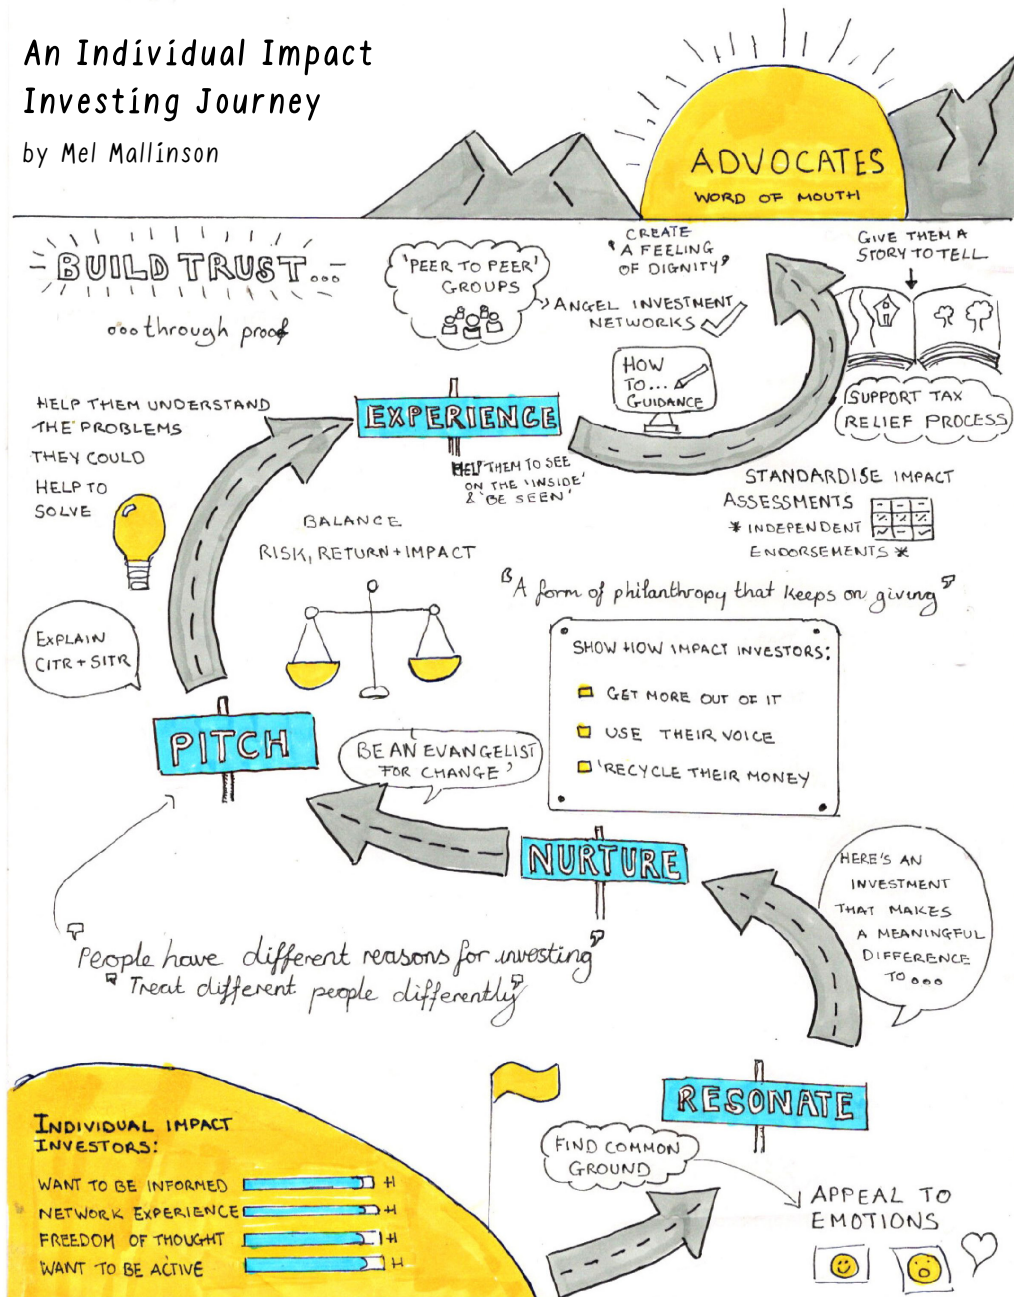 An Individual Impact
Investing Journey
by Mel Mallinson
ADVOCATES
WORD OF MOUTH
BUILD TRUST...
...through proof
'PEER TO PEER'
GROUPS
CREATE
'A FEELING
OF DIGNITY'
ANGEL INVESTMENT
NETWORKS
GIVE THEM A
STORY TO TELL
HOW
TO...
GUIDANCE
SUPPORT TAX
RELIEF PROCESS
EXPERIENCE
HELP THEM TO SEE
ON THE 'INSIDE'
& 'BE SEEN'
HELP THEM UNDERSTAND
THE PROBLEMS
THEY COULD
HELP TO
SOLVE
STANDARDISE IMPACT
ASSESSMENTS
* INDEPENDENT
ENDORSEMENTS *
BALANCE
RISK, RETURN + IMPACT
"A form of philanthropy that keeps on giving"
EXPLAIN
CITR + SITR
SHOW HOW IMPACT INVESTORS:
GET MORE OUT OF IT
USE THEIR VOICE
'RECYCLE THEIR MONEY
PITCH
BE AN EVANGELIST
FOR CHANGE'
NURTURE
HERE'S AN
INVESTMENT
THAT MAKES
A MEANINGFUL
DIFFERENCE
TO...
"People have different reasons for investing"
"Treat different people differently"
RESONATE
FIND COMMON
GROUND
APPEAL TO
EMOTIONS
INDIVIDUAL IMPACT
INVESTORS:
WANT TO BE INFORMED +1
NETWORK EXPERIENCE +1
FREEDOM OF THOUGHT +1
WANT TO BE ACTIVE +1